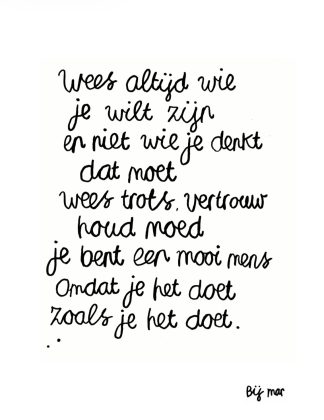 wees altijd wie
je wilt zijn
en niet wie je denkt
dat moet
wees trots, vertrouw
houd moed
je bent een mooi mens
Omdat je het doet
zoals je het doet.
Bij mar